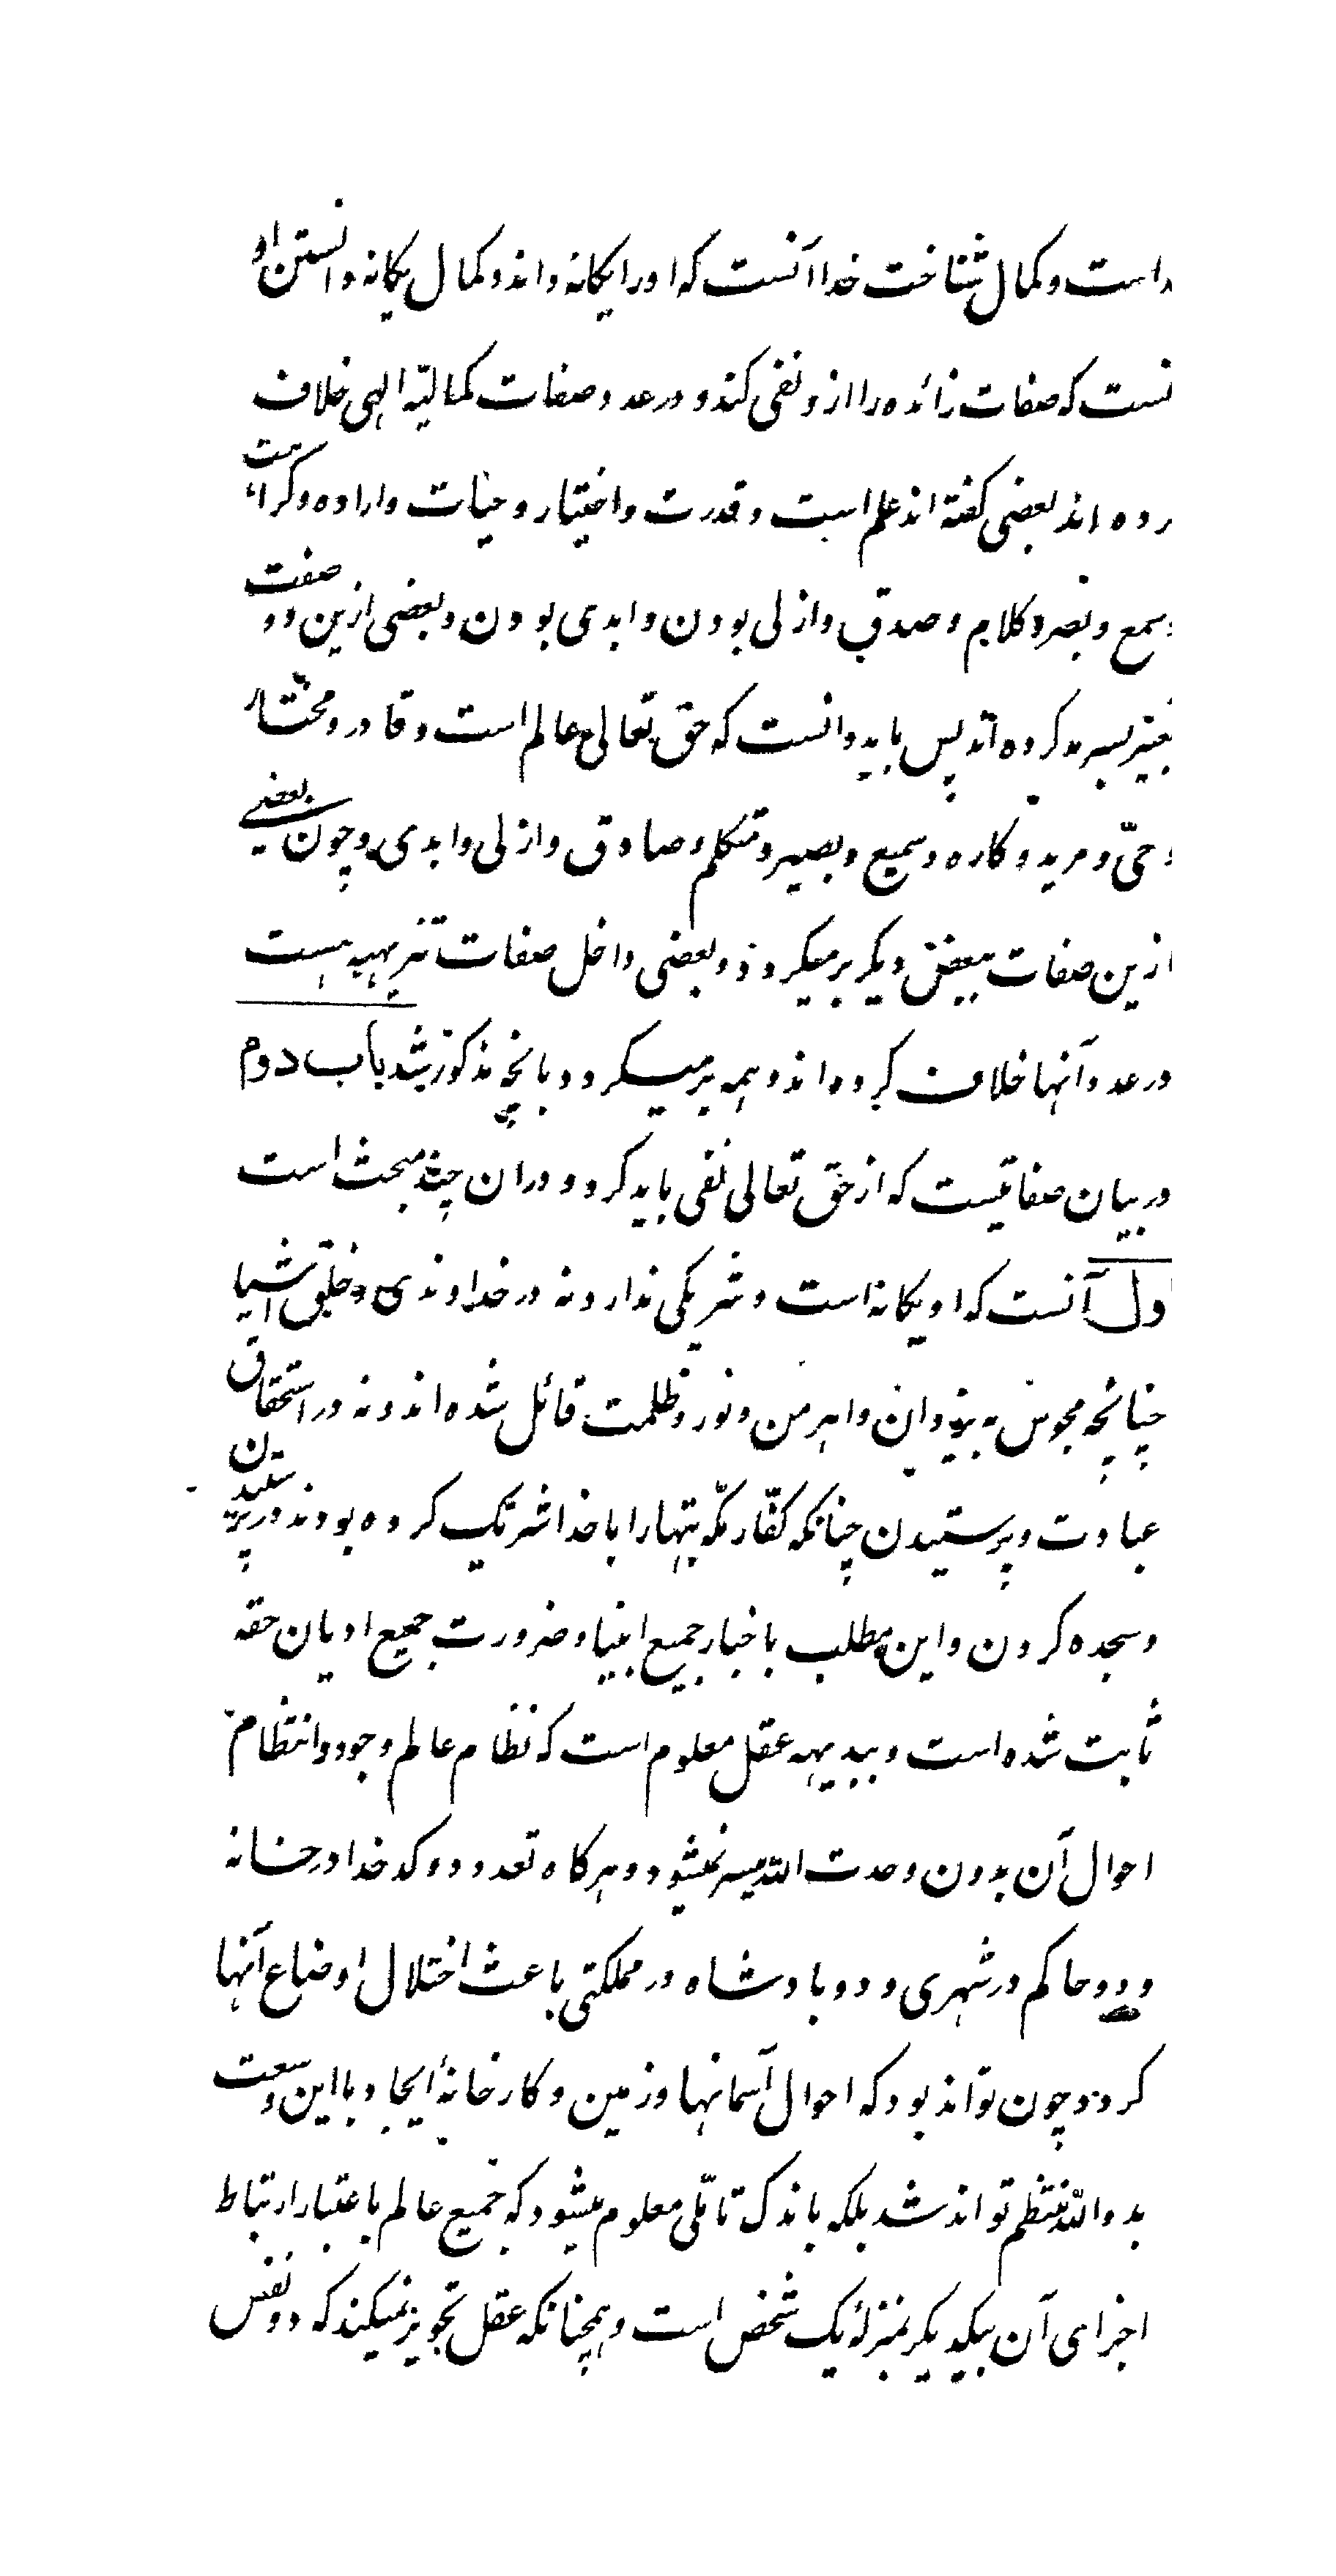 داست و کمال شناخت خدا آنست که او را یکانه داند و کمال یکانه دانستن او
نست که صفات زائده را ازو نفی کند و در عدد صفات کمالیّه الهی خلاف
رده اند بعضی کفته اند علم است و قدرت و اختیار و حیات و اراده و کراهت
و سمع و بصر و کلام و صدق و ازلی بودن و ابدی بودن و بعضی ازین دو صفت
تعبیر بسرمد کرده اند پس باید دانست که حق تعالی عالم است و قادر و مختار
و حیّ و مرید و کاره و سمیع و بصیر و متکلم و صادق و ازلی و ابدی و چون بعضی
ازین صفات ببعض دیکر برمیکردد و بعضی داخل صفات تنزیهیه هست
در عدد آنها خلاف کرده اند و همه برمیکردد بانچه مذکور شد باب دوم
در بیان صفاتیست که از حق تعالی نفی باید کرد و دران چند مبحث است
اول آنست که او یکانه است و شریکی ندارد نه در خداوندی و خلق اشیا
چنانچه مجوس به یزدان و اهرمن و نور و ظلمت قائل شده اند و نه در استحقاق
عبادت و پرستیدن چنانکه کفّار مکّه بتها را با خدا شریک کرده بودند در پرستیدن
و سجده کردن و این مطلب باخبار جمیع انبیا و ضرورت جمیع ادیان حقه
ثابت شده است و ببدیهه عقل معلوم است که نظام عالم وجود و انتظام
احوال آن بدون وحدت الله میسر نمیشود و هرکاه تعدد دو کدخدا در خانه
و دو حاکم در شهری و دو پادشاه در مملکتی باعث اختلال اوضاع آنها
کردد چون تواند بود که احوال آسمانها و زمین و کارخانهٔ ایجاد با این وسعت
بدو الله منتظم تواند شد بلکه باندک تأمّلی معلوم میشود که جمیع عالم باعتبار ارتباط
اجزای آن بیکدیکر بمنزلهٔ یک شخص است و همچنانکه عقل تجویز نمیکند که دو نفس